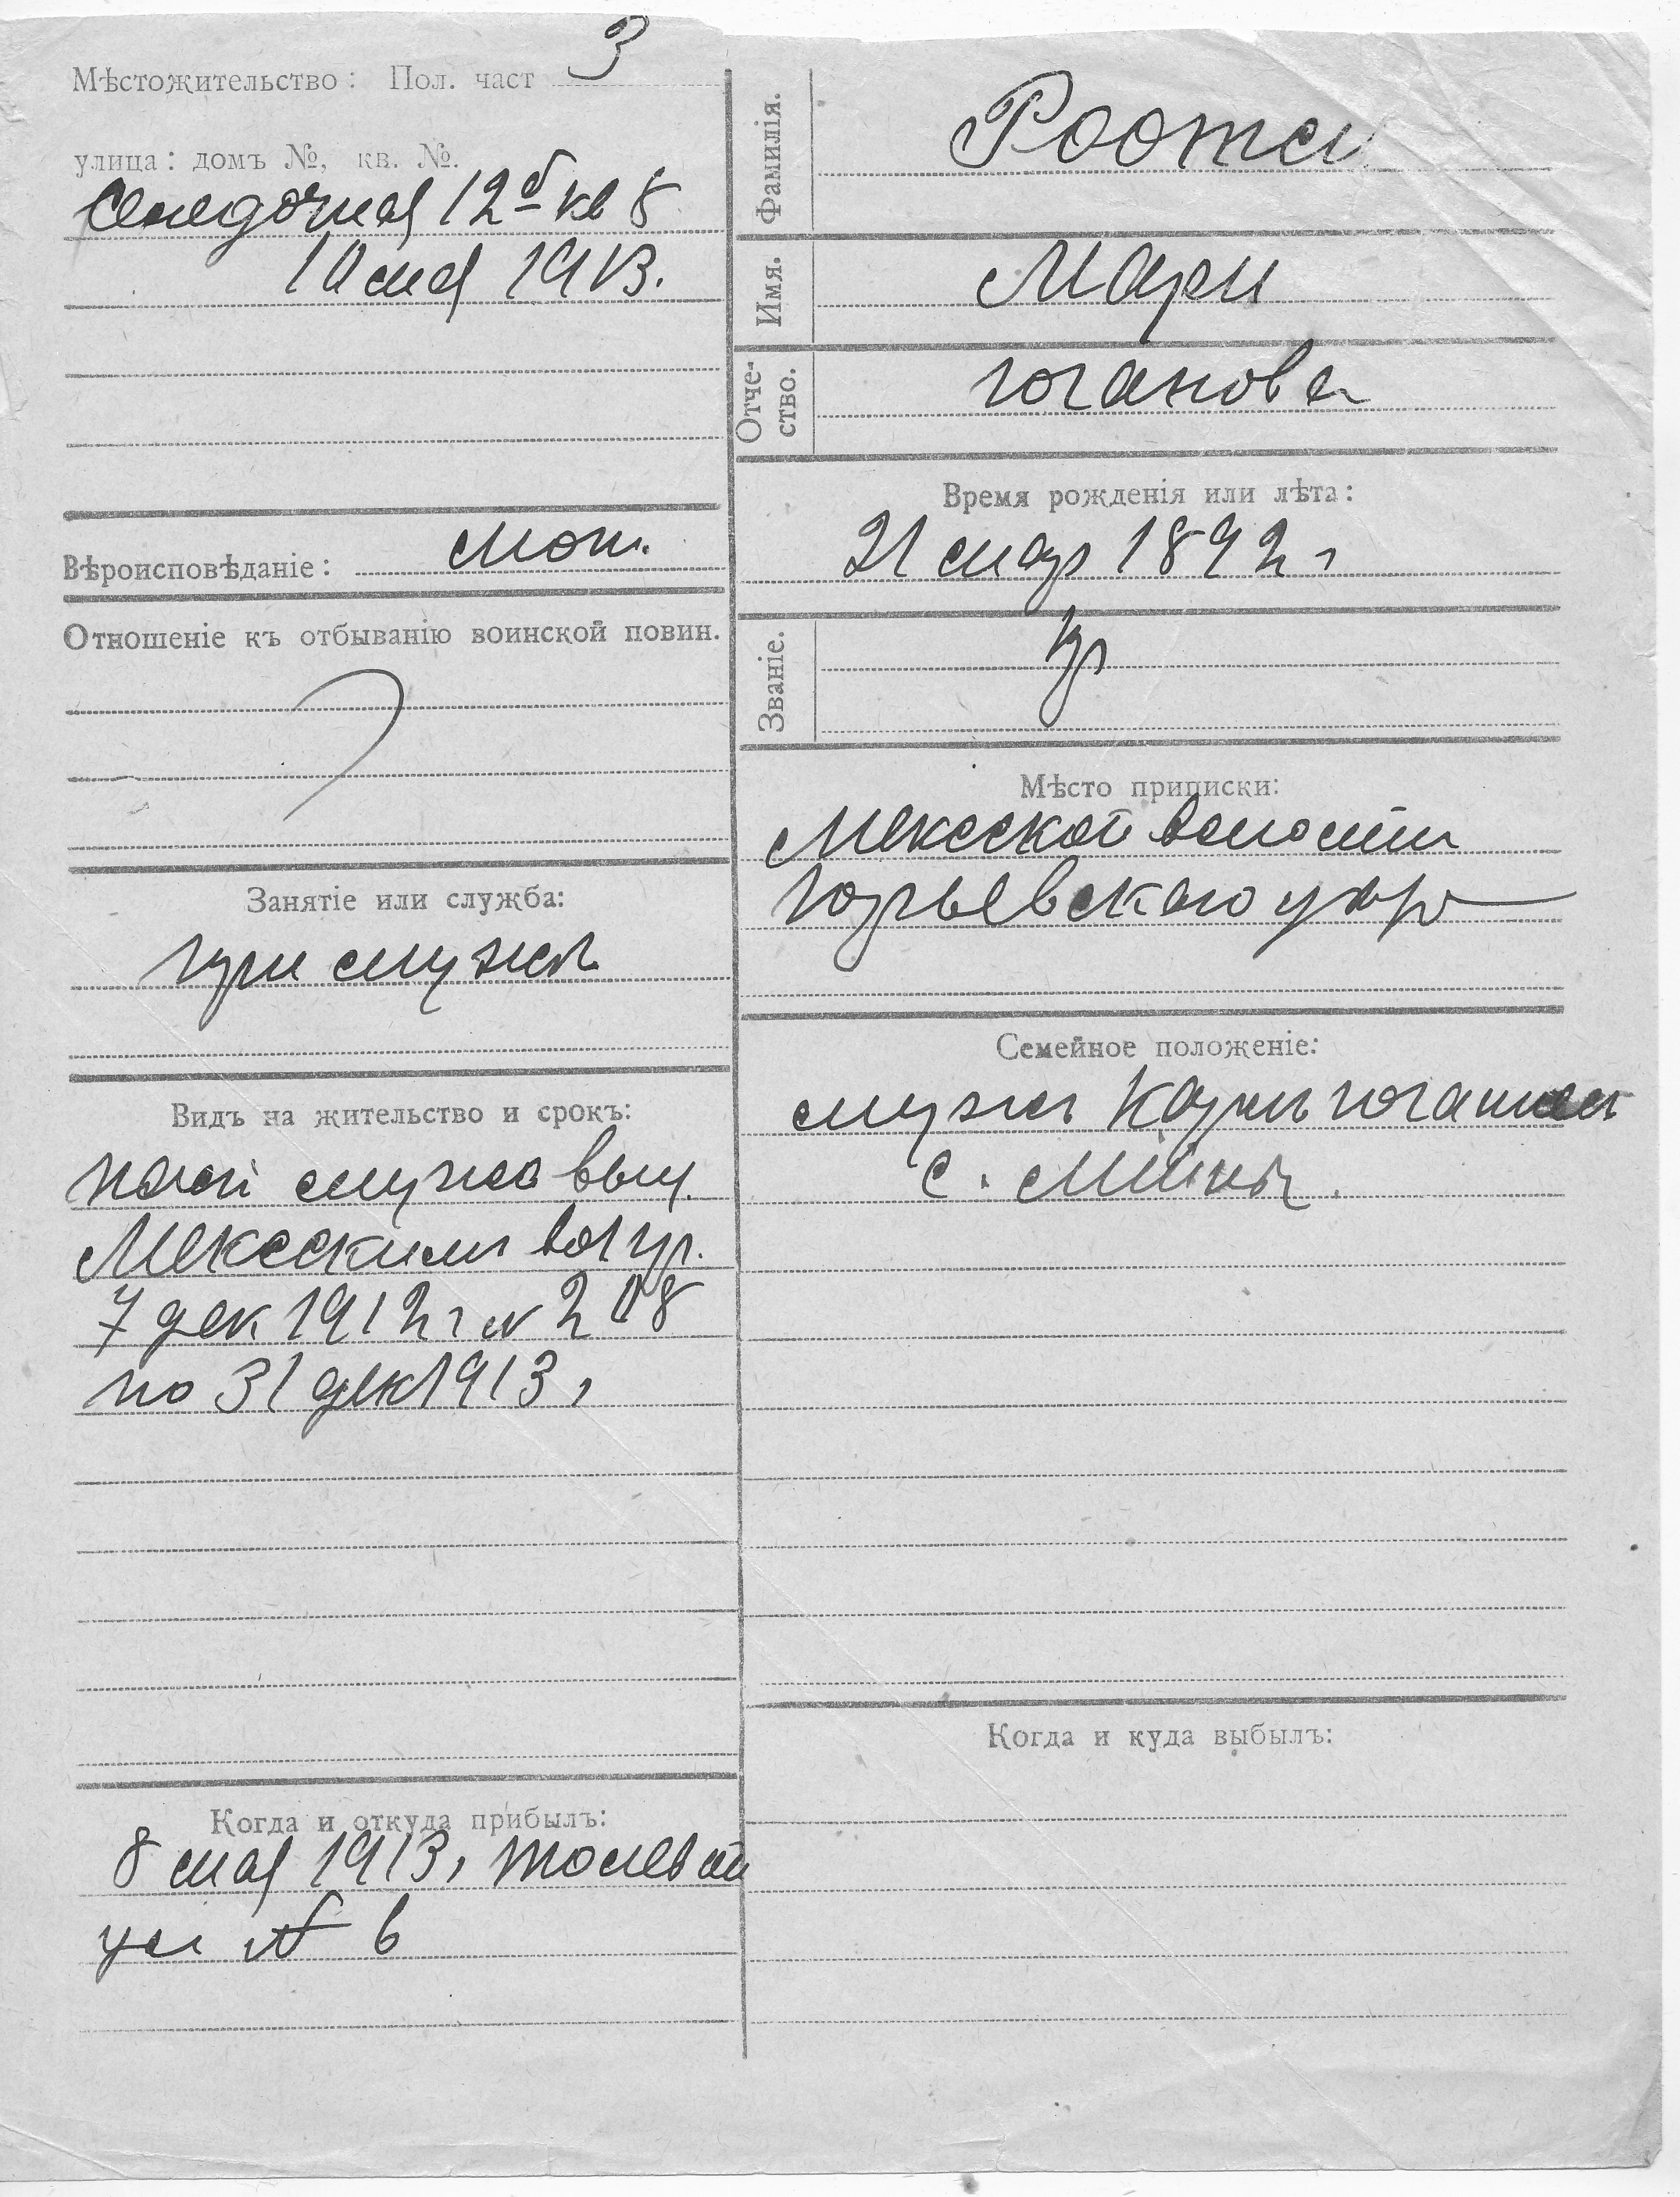 Мѣстожительство: Пол. част 3
улица: домъ №, кв. №.
12б кв 8
10 мая 1913.
Вѣроисповѣданіе: лют.
Отношеніе къ отбыванію воинской повин.
Занятіе или служба:
при мужѣ
Видъ на жительство и срокъ:
мужа выд.
Мекскимъ вол пр.
7 дек 1912 г № 208
по 31 дек 1913 г
Когда и откуда прибылъ:
8 мая 1913 г
ул № 6
Фамилія. Роотси
Имя. Мари
Отчество. Юганова
Время рожденія или лѣта:
21 мар 1892 г
Званіе. кр
Мѣсто приписки:
Мексской волости
Юрьевскаго уѣзд
Семейное положеніе:
мужъ Карлъ Юганновъ
с.
Когда и куда выбылъ: